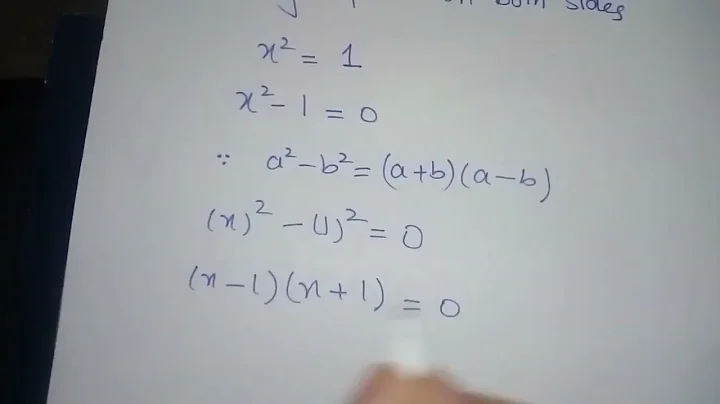 on both sides
x² = 1
x² - 1 = 0
∵ a² - b² = (a+b)(a-b)
(x)² - (1)² = 0
(x-1)(x+1) = 0